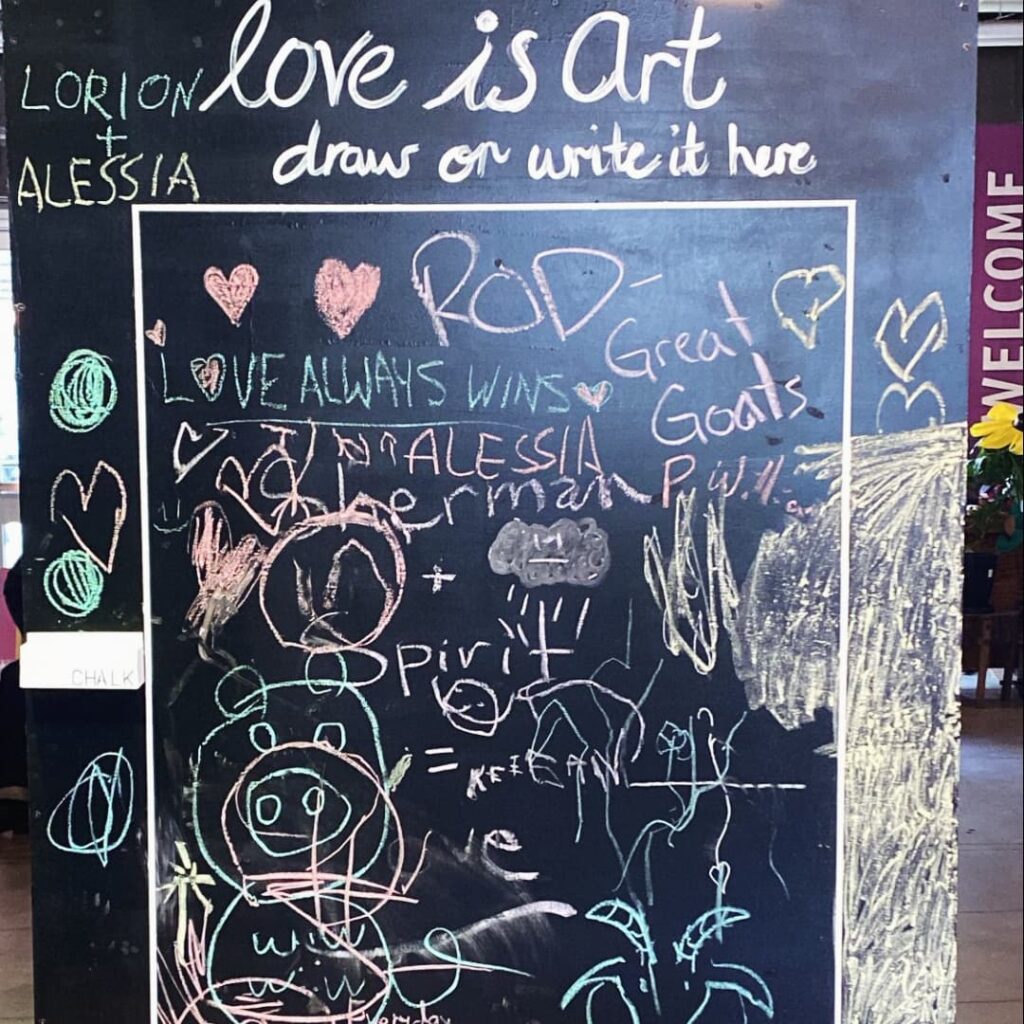 love is Art
LORION
+
ALESSIA
draw or write it here
WELCOME
ROD-
Great
Goals
LOVE ALWAYS WINS
ALESSIA
herman
P.W.
+
Spirit
=
KEIEAN
CHALK
Everyday